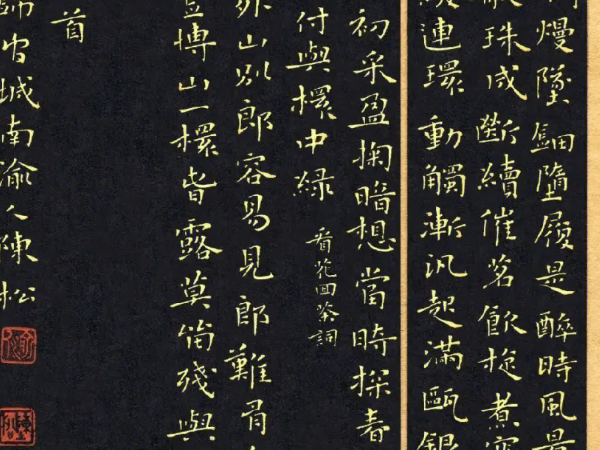 熳墜鈿墮履是醉時風景
珠成斷續催茗飲旋煮寒
連環動觸漸汎起滿甌銀
初采盈掬暗想當時探春
付與杯中綠
看花回茶詞
外山別郎容易見郎難有
金博山一杯春露莫留殘與
首
錦官城南渝人陳松